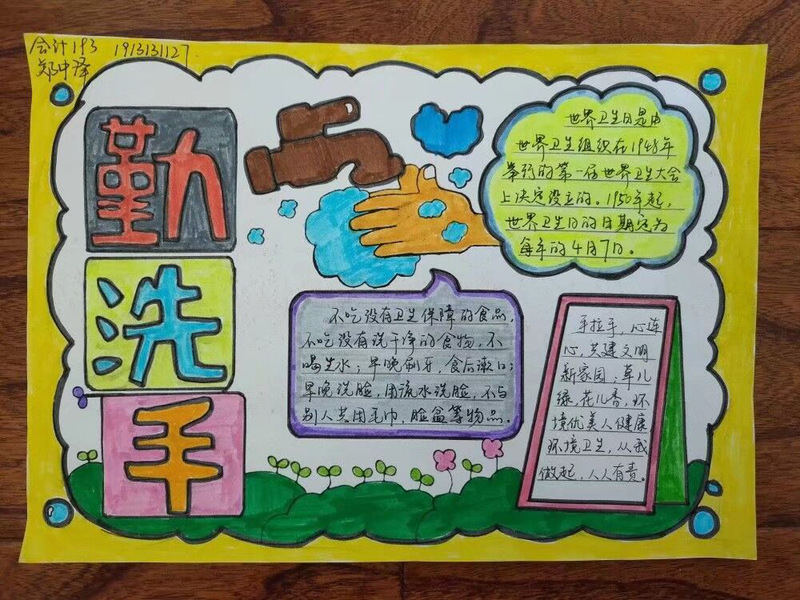 会计193 1913131127
郑中泽
勤
洗
手
世界卫生日是由
世界卫生组织在1948年
举行的第一届世界卫生大会
上决定设立的。1950年起,
世界卫生日的日期定为
每年的4月7日。
不吃没有卫生保障的食品,
不吃没有洗干净的食物,不
喝生水;早晚刷牙,食后漱口;
早晚洗脸,用流水洗脸,不与
别人共用毛巾,脸盆等物品.
手拉手,心连
心,共建文明
新家园;草儿
绿,花儿香,环
境优美人健康
环境卫生,从我
做起,人人有责。